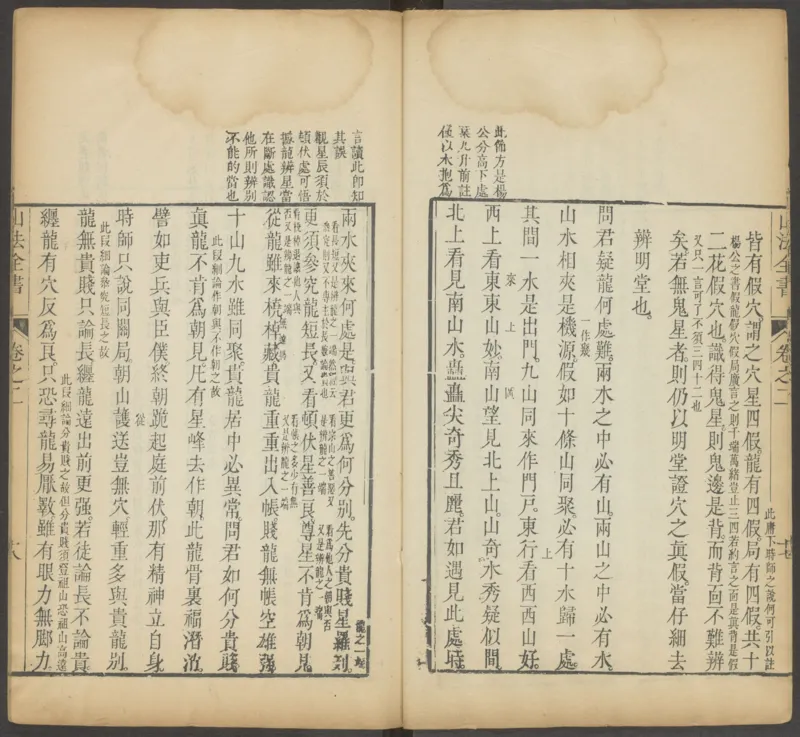 此篇方是楊
公分高下處
山法全書
卷之二
七
此廖下時師之說何可引以註
皆有假穴謂之穴星四假龍有四假局有四假共十
楊公之書假龍假穴假局廣言之則千端萬緒豈止三四若約言之面是真背是假
又只一言可了不須三四十二也
二花假穴也識得鬼星則鬼邊是背而背面不難辨
矣若無鬼星者則仍以明堂證穴之真假當仔細去
辨明堂也
問君疑龍何處難兩水之中必有山兩山之中必有水
一作聚
山水相夾是機源假如十條山同聚必有十水歸一處
其間一水是出門九山同來作門戶東行看西西山好
西上看東東山妙南山望見北上山山奇水秀疑似間
北上看見南山水矗矗尖奇秀且麗君如遇見此處時
言讀此即知
其誤
觀星辰須於
頓伏處可悟
據龍辨星當
在斷處識認
他所則辨別
不能的當也
兩水夾來何處是與君更為何分別先分貴賤星羅列
更須參究龍短長又看頓伏星善良尊星不肯為朝見
從龍雖來橈棹藏貴龍重重出入帳賤龍無帳空雄強
十山九水雖同聚貴龍居中必異常問君如何分貴賤
此段細論作朝與不作朝之故
真龍不肯為朝見凡有星峰去作朝此龍骨裏福潛消
譬如吏兵與臣僕終朝跪起庭前伏那有精神立自身
時師只說同關局朝山護送豈無穴輕重多與貴龍別
此段細論參究短長之故
龍無貴賤只論長纏龍遠出前更強若徒論長不論貴
此段細論分貴賤之故但分貴賤須登祖山恐祖山高遠
纏龍有穴反為良只恐尋龍易厭斁雖有眼力無腳力
山法全書
卷之二
八